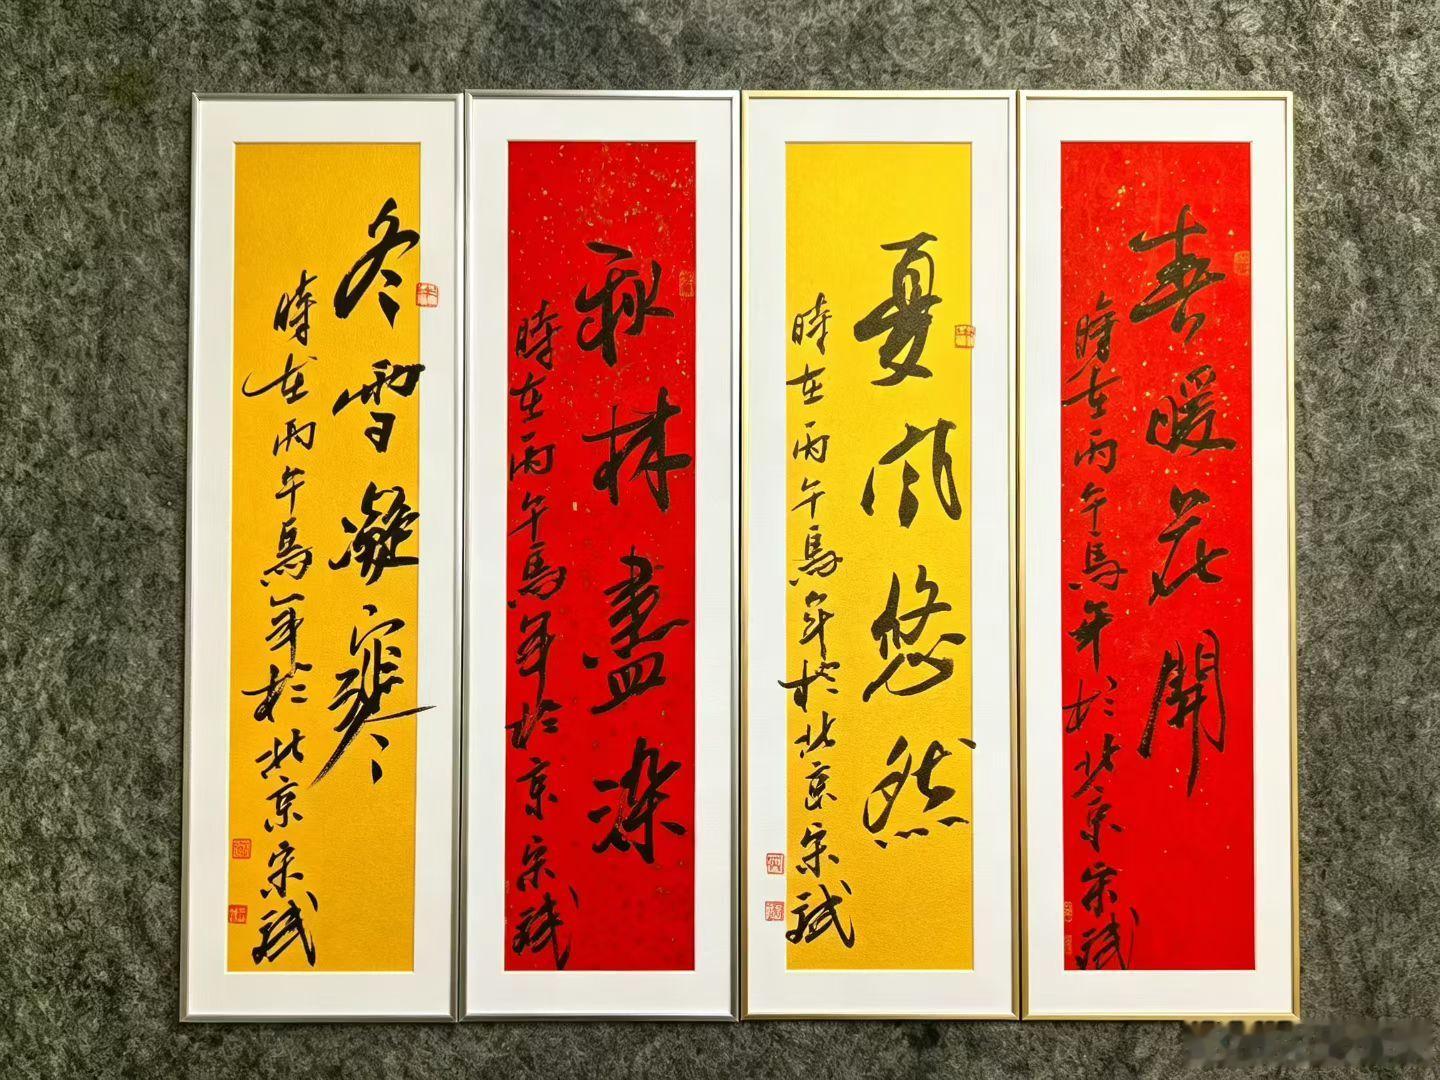 春暖花開
時在丙午馬年於北京宋斌
夏風悠然
時在丙午馬年於北京宋斌
秋林盡染
時在丙午馬年於京宋斌
冬雪凝寒
時在丙午馬年於北京宋斌